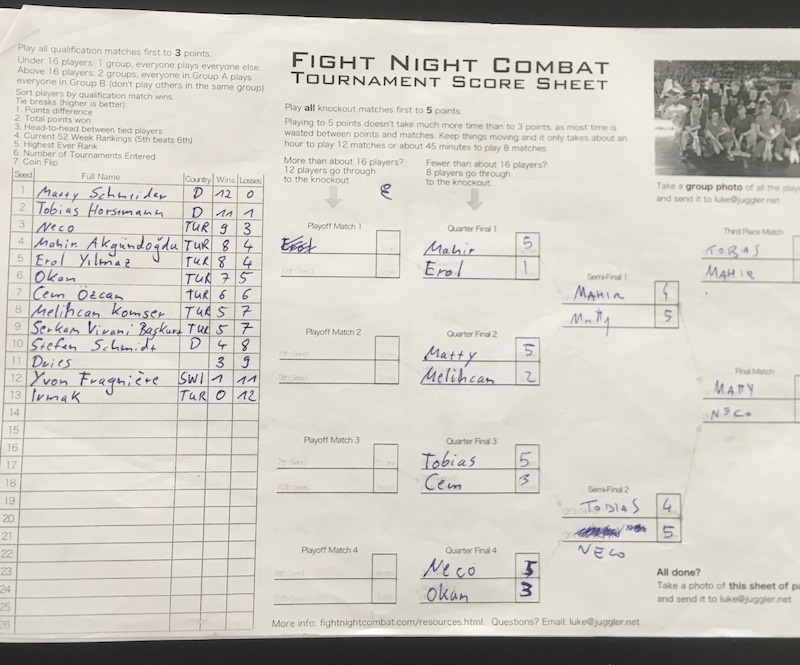 Play all qualification matches first to 3 points.
Under 16 players: 1 group, everyone plays everyone else
Above 16 players: 2 groups, everyone in Group A plays
everyone in Group B (don't play others in the same group).
Sort players by qualification match wins.
Tie breaks (higher is better):
1. Points difference
2. Total points won
3. Head-to-head between tied players
4. Current 52 Week Rankings (5th beats 6th)
5. Highest Ever Rank
6. Number of Tournaments Entered
7. Coin Flip
Seed Full Name Country Wins Losses
1 Matty Schneider D 12 0
2 Tobias Horsmann D 11 1
3 Neco TUR 9 3
4 Mahir Akgündoğdu TUR 8 4
5 Erol Yılmaz TUR 8 4
6 Okan TUR 7 5
7 Cem Özcan TUR 6 6
8 Melihcan Komser TUR 5 7
9 Serkan Virani Baskurt TUR 5 7
10 Stefan Schmidt D 4 8
11 Dries 3 9
12 Yvon Fragnière SWI 1 11
13 Irmak TUR 0 12
14
15
16
17
18
19
20
21
22
23
24
25
26
FIGHT NIGHT COMBAT
TOURNAMENT SCORE SHEET
Play all knockout matches first to 5 points.
Playing to 5 points doesn't take much more time than to 3 points, as most time is
wasted between points and matches. Keep things moving and it only takes about an
hour to play 12 matches or about 45 minutes to play 8 matches
More than about 16 players?
12 players go through
to the knockout
Fewer than about 16 players?
8 players go through
to the knockout
Playoff Match 1
Playoff Match 2
Playoff Match 3
Playoff Match 4
Quarter Final 1
Mahir 5
Erol 1
Quarter Final 2
Matty 5
Melihcan 2
Quarter Final 3
Tobias 5
Cem 3
Quarter Final 4
Neco 5
Okan 3
Semi-Final 1
MAHIR
Matty 5
Semi-Final 2
TOBIAS 4
5
NECO
Take a group photo of all the play
and send it to luke@juggler.net
Third Place Match
TOBIAS
MAHIR
Final Match
MATTY
NECO
All done?
Take a photo of this sheet of pa
and send it to luke@juggler.net
More info: fightnightcombat.com/resources.html Questions? Email: luke@juggler.net